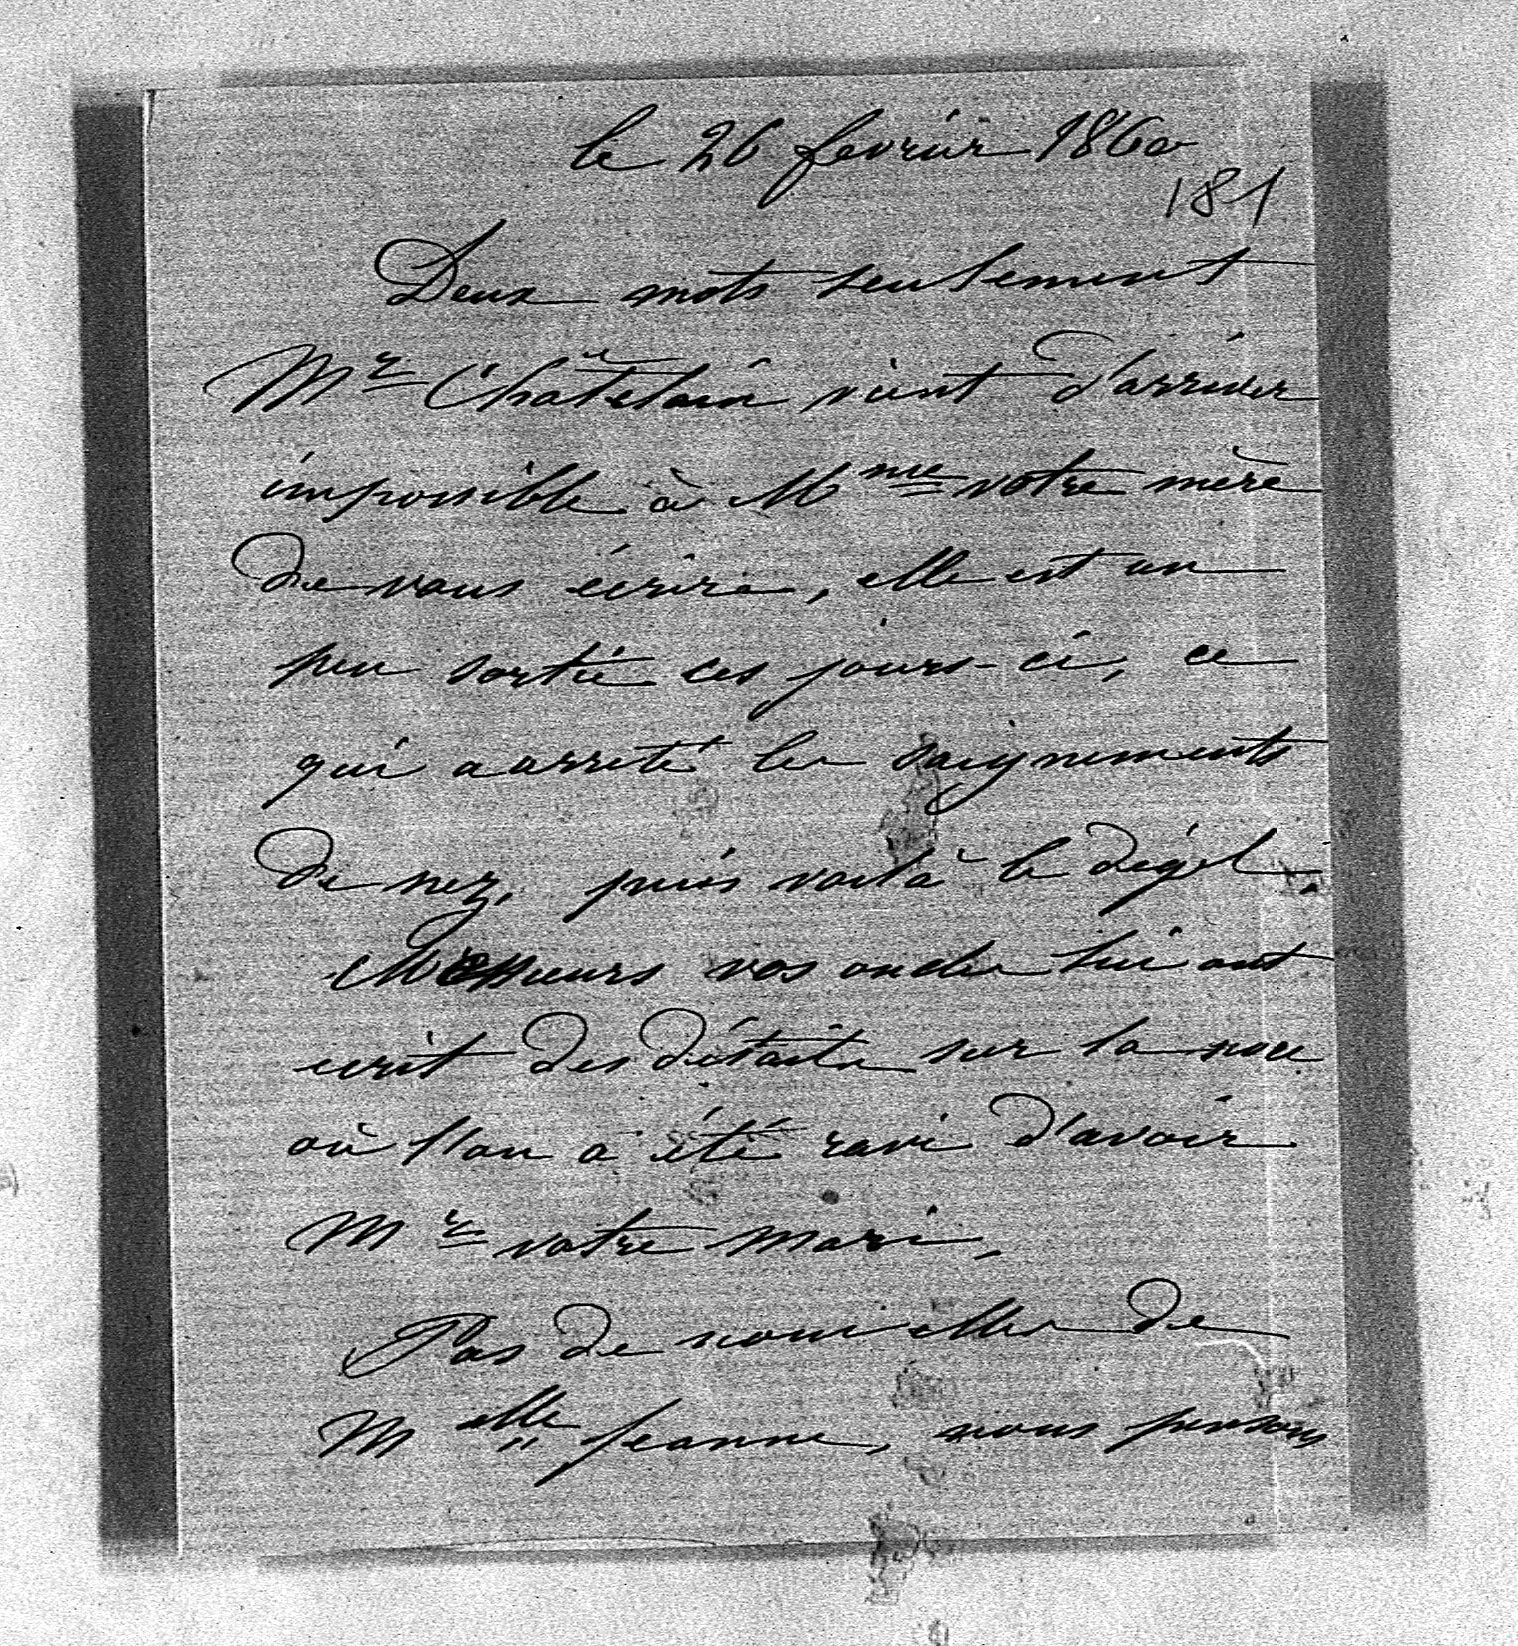 le 26 fevrier 1860
181
Deux mots seulement
Mr Châtelain vient d'arriver
impossible à Mme votre mère
de vous écrire, elle est un
peu sortie ces jours-ci, ce
qui a arreté les saignements
de nez, puis voilà le dégel.
Messieurs vos oncles lui ont
ecrit des détails sur la noce
où l'on a été ravi d'avoir
Mr votre mari.
Pas de nouvelles de
Melle Jeanne, nous pensons